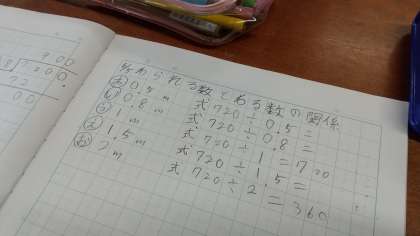 900
8)7200.
72
00
わられる数とわる数の関係
あ 0.5m 式 720÷0.5=
い 0.8m 式 720÷0.8=
う 1m 式 720÷1=720
え 1.5m 式 720÷1.5=
お 2m 式 720÷2=360